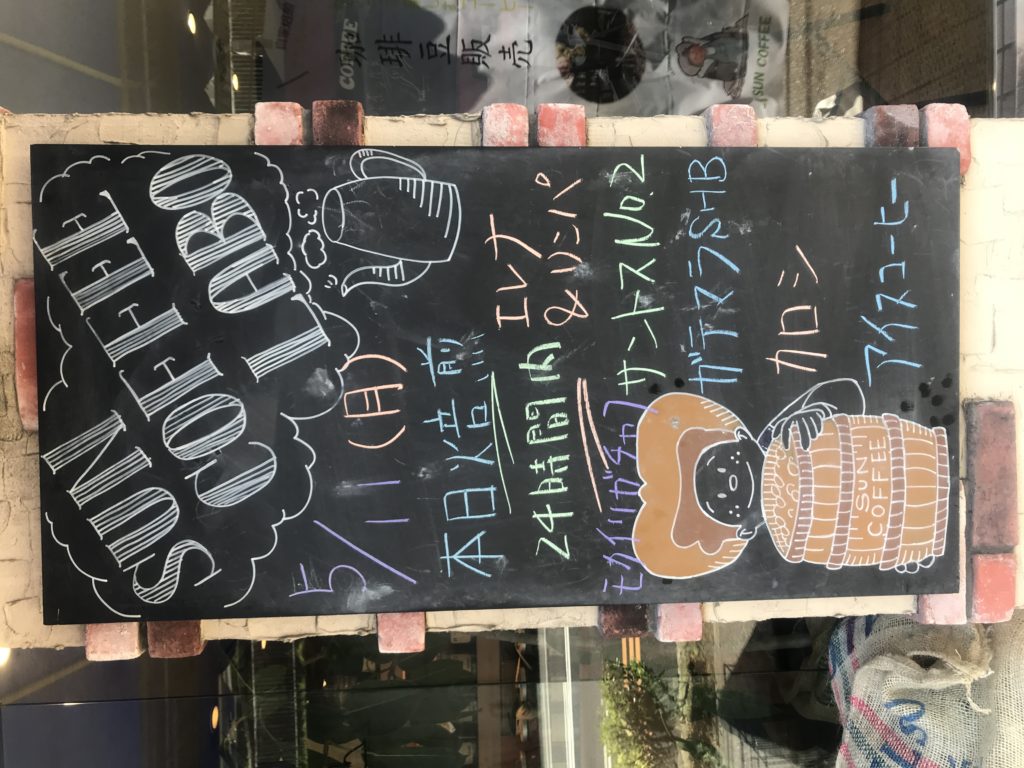 SUN
COFFEE
LABO
5/11(月)
本日焙煎
24時間内
エレナ
&リンパ
モカイリガチャフ
サントスNo.2
ガテマラSHB
カロシ
アイスコーヒー
SUN
COFFEE
珈琲豆販売
SUN COFFEE